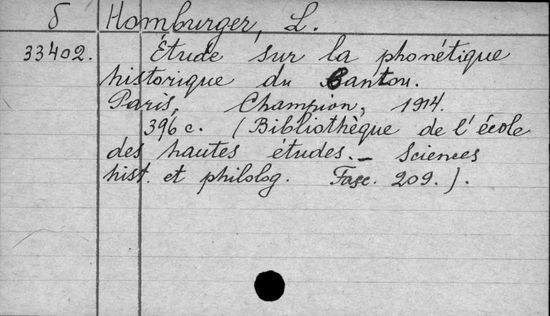 δ Homburger, L.
33402. Étude sur la phonétique
historique du Bantou.
Paris, Champion, 1914.
396 c. (Bibliothèque de l'école
des hautes études. – Sciences
hist. et philolog. Fasc. 209.).